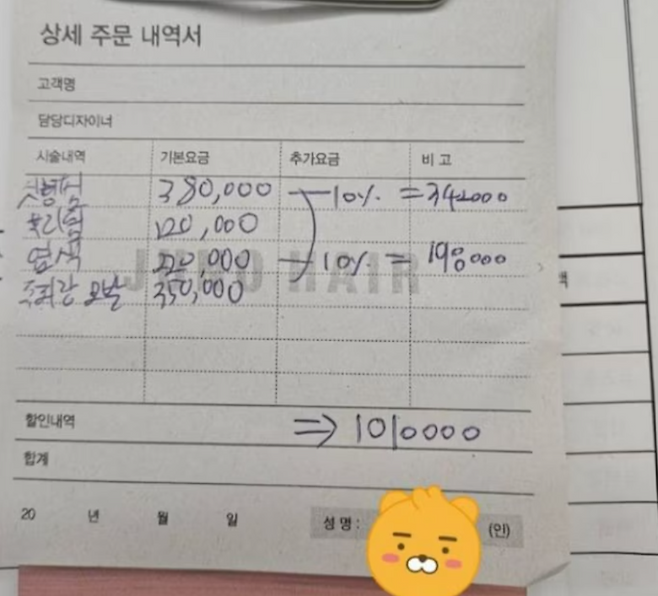 상세 주문 내역서
고객명
담당디자이너
시술내역 기본요금 추가요금 비고
380,000 10% = 342000
뿌리펌 120,000
염색 220,000 10% = 198000
JUNO HAIR
모발 350,000
할인내역 ⇒ 1010000
합계
20 년 월 일 성명 : (인)